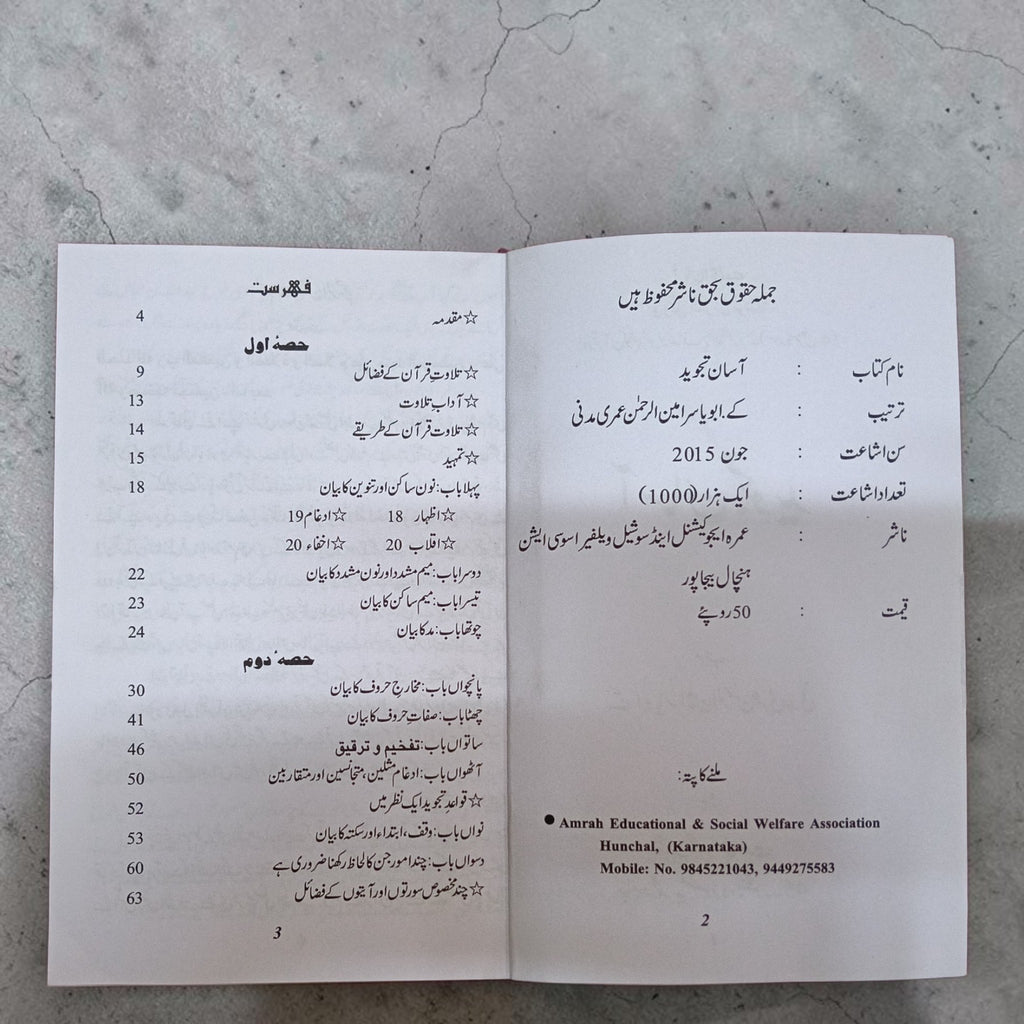 جملہ حقوق بحق ناشر محفوظ ہیں
نام کتاب : آسان تجوید
ترتیب : کے.ابو یاسر امین الرحمٰن عمری مدنی
سن اشاعت : جون 2015
تعداد اشاعت : ایک ہزار (1000)
ناشر : عمرہ ایجوکیشنل اینڈ سوشیل ویلفیر اسوسی ایشن
ہنچال بیجاپور
قیمت : 50 روپئے
ملنے کا پتہ:
● Amrah Educational & Social Welfare Association
Hunchal, (Karnataka)
Mobile: No. 9845221043, 9449275583
2
فہرست
☆ مقدمہ 4
حصۂ اول
☆ تلاوتِ قرآن کے فضائل 9
☆ آدابِ تلاوت 13
☆ تلاوتِ قرآن کے طریقے 14
☆ تمہید 15
پہلا باب: نون ساکن اور تنوین کا بیان 18
☆ اظہار 18 ☆ ادغام 19
☆ اقلاب 20 ☆ اخفاء 20
دوسرا باب: میم مشدد اور نون مشدد کا بیان 22
تیسرا باب: میم ساکن کا بیان 23
چوتھا باب: مد کا بیان 24
حصۂ دوم
پانچواں باب: مخارجِ حروف کا بیان 30
چھٹا باب: صفاتِ حروف کا بیان 41
ساتواں باب: تفخیم و ترقیق 46
آٹھواں باب: ادغام مثلین، متجانسین اور متقاربین 50
☆ قواعدِ تجوید ایک نظر میں 52
نواں باب: وقف، ابتداء اور سکتہ کا بیان 53
دسواں باب: چند امور جن کا لحاظ رکھنا ضروری ہے 60
☆ چند مخصوص سورتوں اور آیتوں کے فضائل 63
3